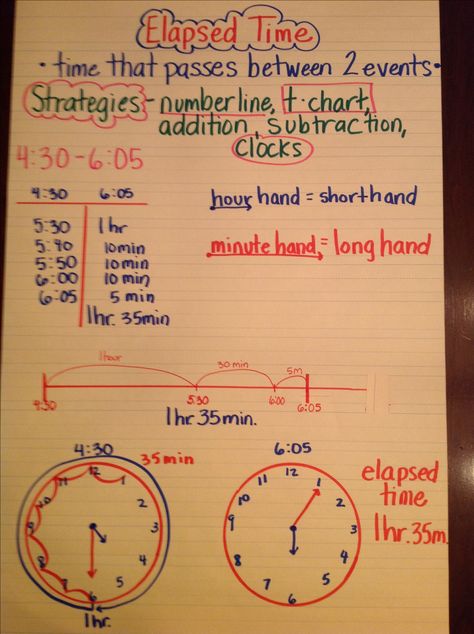 Elapsed Time
• time that passes between 2 events •
Strategies - numberline, t-chart,
addition, subtraction,
clocks
4:30-6:05
4:30 6:05
5:30 1hr
5:40 10min
5:50 10min
6:00 10 min
6:05 5 min
1hr. 35min
hour hand = short hand
minute hand = long hand
1 hour 30 min 5m
4:30 5:30 6:00 6:05
1hr 35min.
4:30
35min
12 1 2 3 4 5 6 7 8 9 10 11
1hr.
6:05
12 1 2 3 4 5 6 7 8 9 10 11
elapsed
time
1hr. 35m.